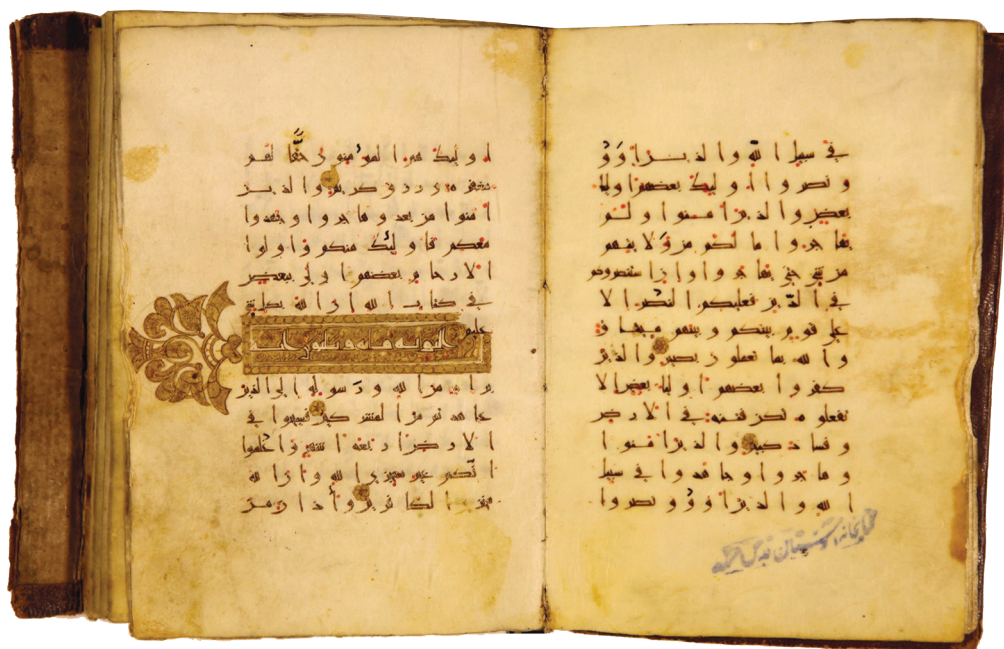 في سبيل الله والذين اووا
ونصروا اوليك بعضهم اوليا
بعض والذين امنوا ولم
يهاجروا ما لكم من ولايتهم
من شي حتى يهاجروا وان استنصروكم
في الدين فعليكم النصر الا
على قوم بينكم وبينهم ميثاق
والله بما تعملون بصير والذين
كفروا بعضهم اوليا بعض الا
تفعلوه تكن فتنة في الارض
وفساد كبير والذين امنوا
وهاجروا وجاهدوا في سبيل
الله والذين اووا ونصروا
کتابخانه آستان قدس
اوليك هم المؤمنون حقا لهم
مغفرة ورزق كريم والذين
امنوا من بعد وهاجروا وجهدوا
معكم فاوليك منكم واولوا
الارحام بعضهم اولى ببعض
في كتاب الله ان الله بكل شي
عليم
التوبة مائة وثلثون
براة من الله ورسوله الى الذين
عاهدتم من المشركين فسيحوا في
الارض اربعة اشهر واعلموا
انكم غير معجزي الله وان الله
مخزي الكافرين وأذان من